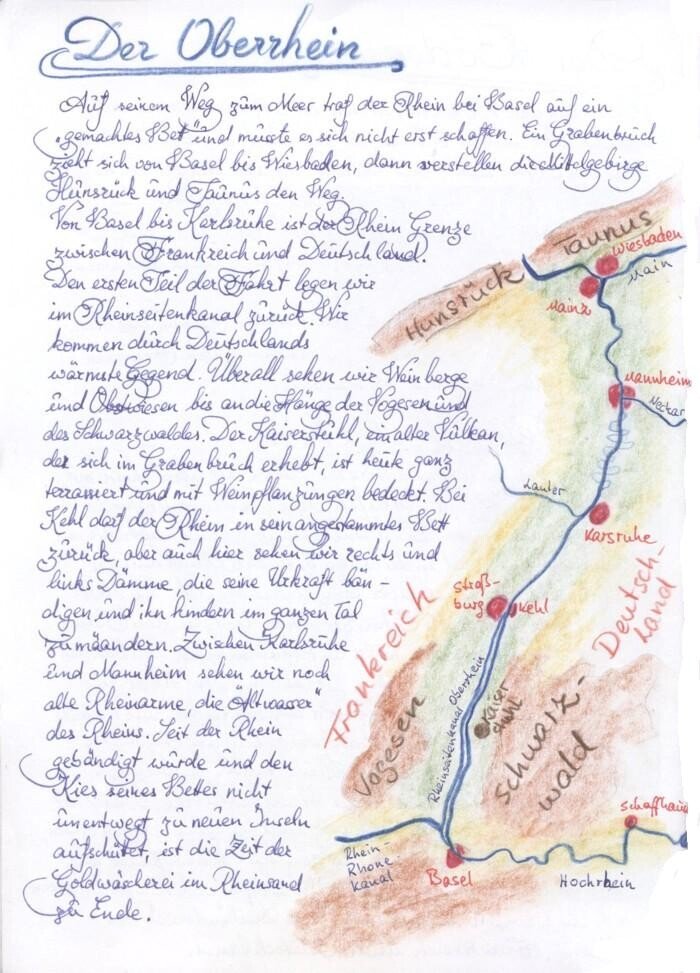 Der Oberrhein
Auf seinem Weg zum Meer traf der Rhein bei Basel auf ein
"gemachtes Bet" und musste es sich nicht erst schaffen. Ein Grabenbruch
zieht sich von Basel bis Wiesbaden, dann verstellen die Mittelgebirge
Hunsrück und Taunus den Weg.
Von Basel bis Karlsruhe ist der Rhein Grenze
zwischen Frankreich und Deutschland.
Den ersten Teil der Fahrt legen wir
im Rheinseitenkanal zurück. Wir
kommen durch Deutschlands
wärmste Gegend. Überall sehen wir Weinberge
und Obstwiesen bis an die Hänge der Vogesen und
des Schwarzwaldes. Der Kaiserstuhl, ein alter Vulkan,
der sich im Grabenbruch erhebt, ist heute ganz
terrassiert und mit Weinpflanzungen bedeckt. Bei
Kehl darf der Rhein in sein angestammtes Bett
zurück, aber auch hier sehen wir rechts und
links Dämme, die seine Urkraft bän-
digen und ihn hindern im ganzen Tal
zu mäandern. Zwischen Karlsruhe
und Mannheim sehen wir noch
alte Rheinarme, die "Altwasser"
des Rheins. Seit der Rhein
gebändigt wurde und den
Kies seines Bettes nicht
unentwegt zu neuen Inseln
aufschütet, ist die Zeit der
Goldwäscherei im Rheinsand
zu Ende.
Taunus
Wiesbaden
Main
Hunsrück
Mainz
Mannheim
Neckar
Lauter
Karsruhe
Straß-
burg
Kehl
Deutsch-
land
Frankreich
Vogesen
Rheinseitenkanal Oberrhein
Kaiser
stuhl
Schwarz-
wald
Schaffhaus
Rhein-
Rhone-
kanal
Basel
Hochrhein